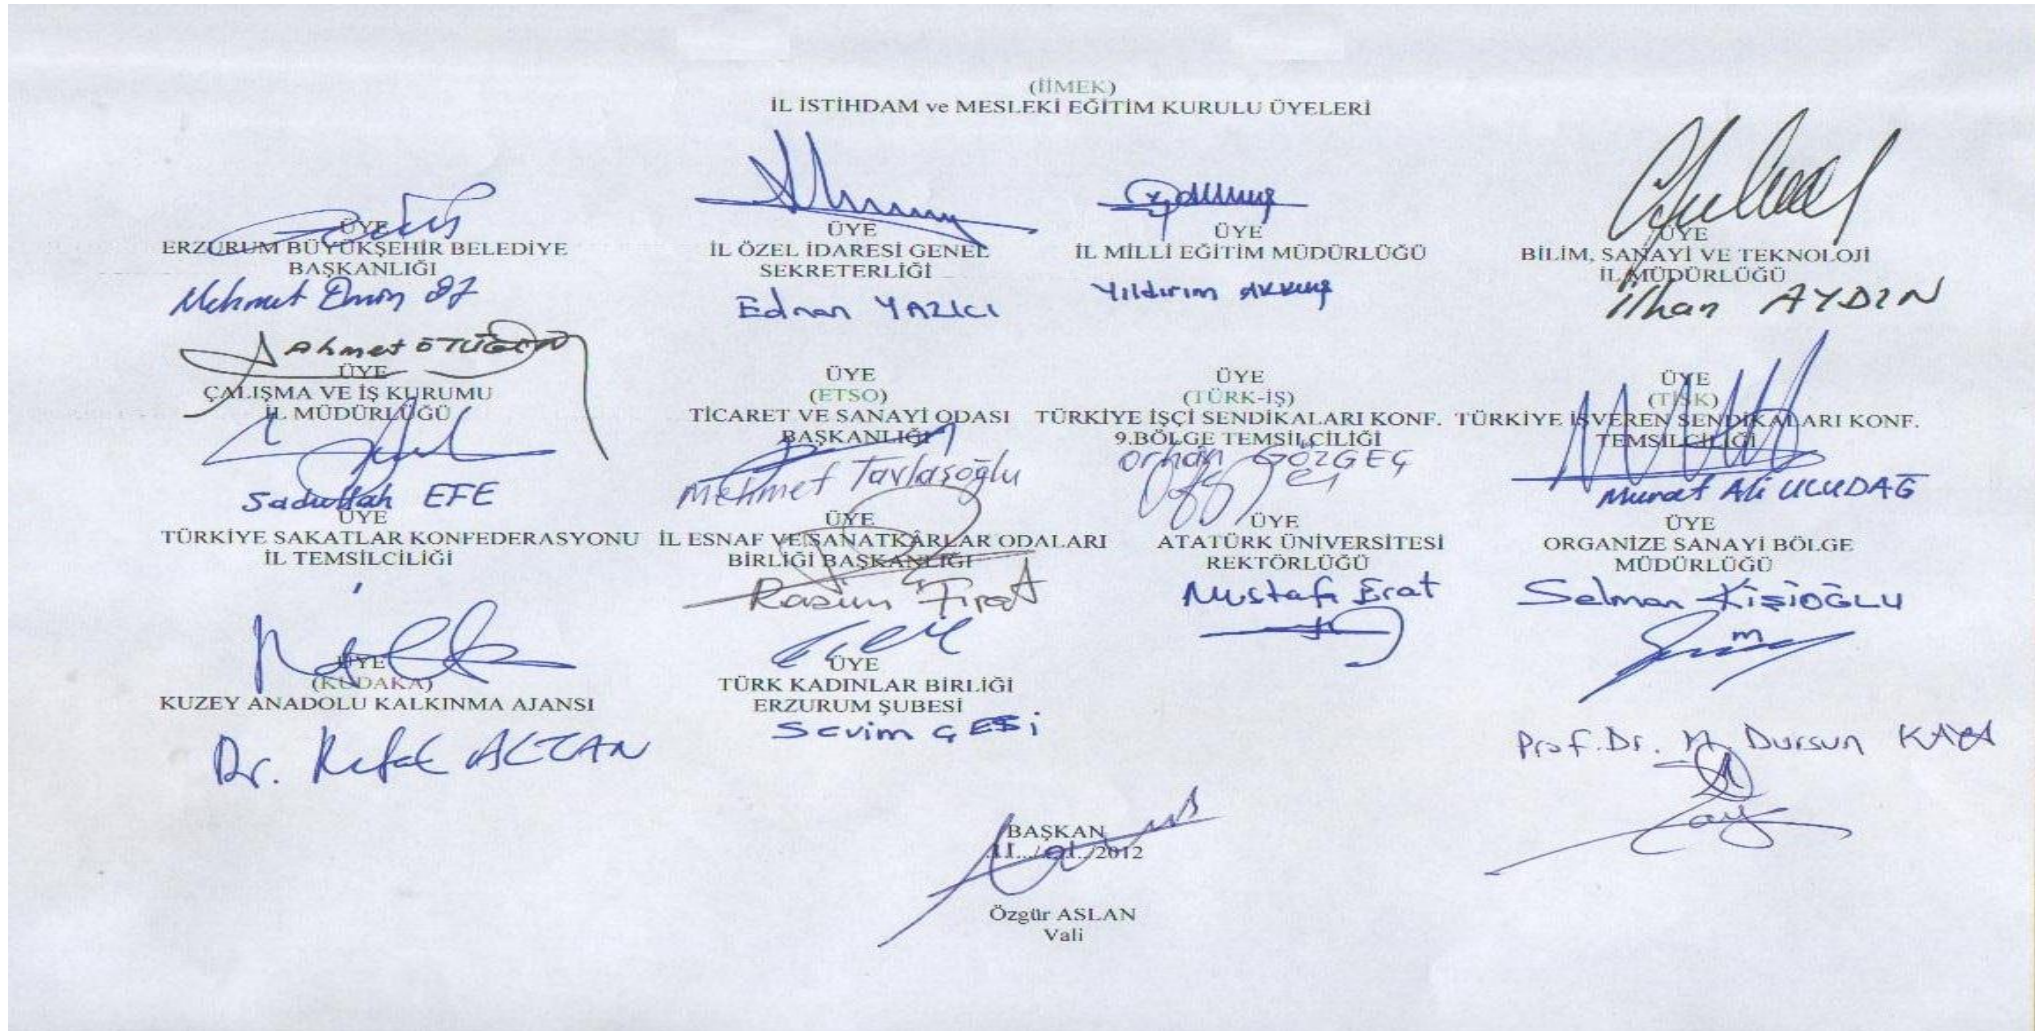 (İİMEK)
İL İSTİHDAM ve MESLEKİ EĞİTİM KURULU ÜYELERİ
ÜYE
ERZURUM BÜYÜKŞEHİR BELEDİYE
BAŞKANLIĞI
Mehmet Emin ÖZ
ÜYE
İL ÖZEL İDARESİ GENEL
SEKRETERLİĞİ
Ednan YAZICI
ÜYE
İL MİLLİ EĞİTİM MÜDÜRLÜĞÜ
Yıldırım AKKUŞ
ÜYE
BİLİM, SANAYİ VE TEKNOLOJİ
İL MÜDÜRLÜĞÜ
İlhan AYDIN
Ahmet
ÜYE
ÇALIŞMA VE İŞ KURUMU
İL MÜDÜRLÜĞÜ
Sadullah EFE
ÜYE
(ETSO)
TİCARET VE SANAYİ ODASI
BAŞKANLIĞI
Mehmet Tavlaşoğlu
ÜYE
(TÜRK-İŞ)
TÜRKİYE İŞÇİ SENDİKALARI KONF.
9.BÖLGE TEMSİLCİLİĞİ
Orhan GÖZGEÇ
ÜYE
(TİSK)
TÜRKİYE İŞVEREN SENDİKALARI KONF.
TEMSİLCİLİĞİ
Murat Ali ULUDAĞ
ÜYE
TÜRKİYE SAKATLAR KONFEDERASYONU
İL TEMSİLCİLİĞİ
ÜYE
İL ESNAF VE SANATKÂRLAR ODALARI
BİRLİĞİ BAŞKANLIĞI
Rasim Fırat
ÜYE
ATATÜRK ÜNİVERSİTESİ
REKTÖRLÜĞÜ
Mustafa Erat
ÜYE
ORGANİZE SANAYİ BÖLGE
MÜDÜRLÜĞÜ
Selman KİŞİOĞLU
ÜYE
(KUDAKA)
KUZEY ANADOLU KALKINMA AJANSI
Dr. ALTAN
ÜYE
TÜRK KADINLAR BİRLİĞİ
ERZURUM ŞUBESİ
Sevim
Prof. Dr. M. Dursun KAYA
BAŞKAN
11.../.01../2012
Özgür ASLAN
Vali